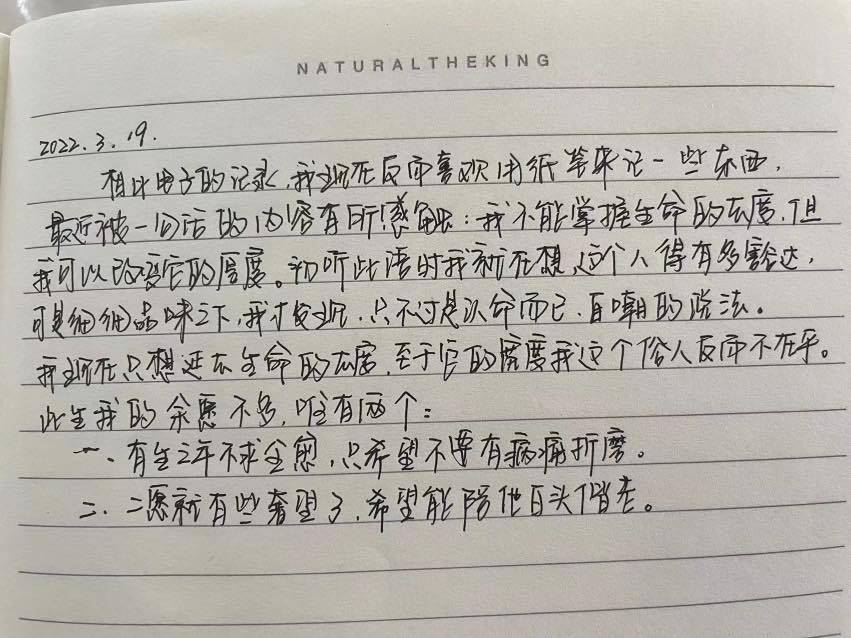 NATURALTHEKING
2022.3.19.
相比电子的记录,我现在反而喜欢用纸笔来记一些东西,
最近被一句话的内容有所感触:我不能掌握生命的长度,但
我可以改变它的厚度。初听此语时我就在想,这个人得有多豁达,
可是细细品味之下,我才发现,只不过是认命而已,自嘲的说法。
我现在只想延长生命的长度,至于它的宽度我这个俗人反而不在乎。
此生我的余愿不多,唯有两个:
一、有生之年不求全愈,只希望不要有病痛折磨。
二、二愿就有些奢望了,希望能陪他白头偕老。